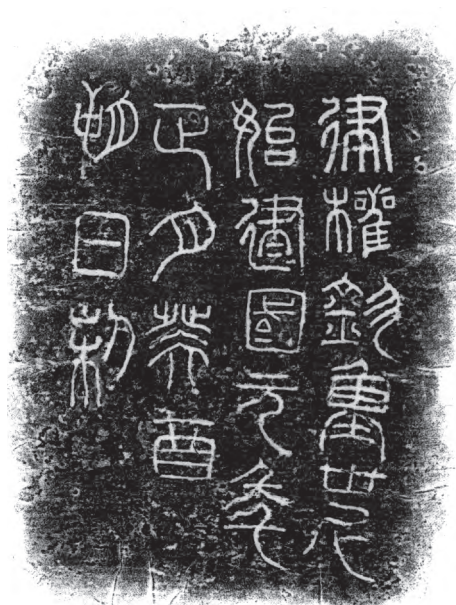 律權鈞重卅斤
始建國元年
正月癸酉
朔日制